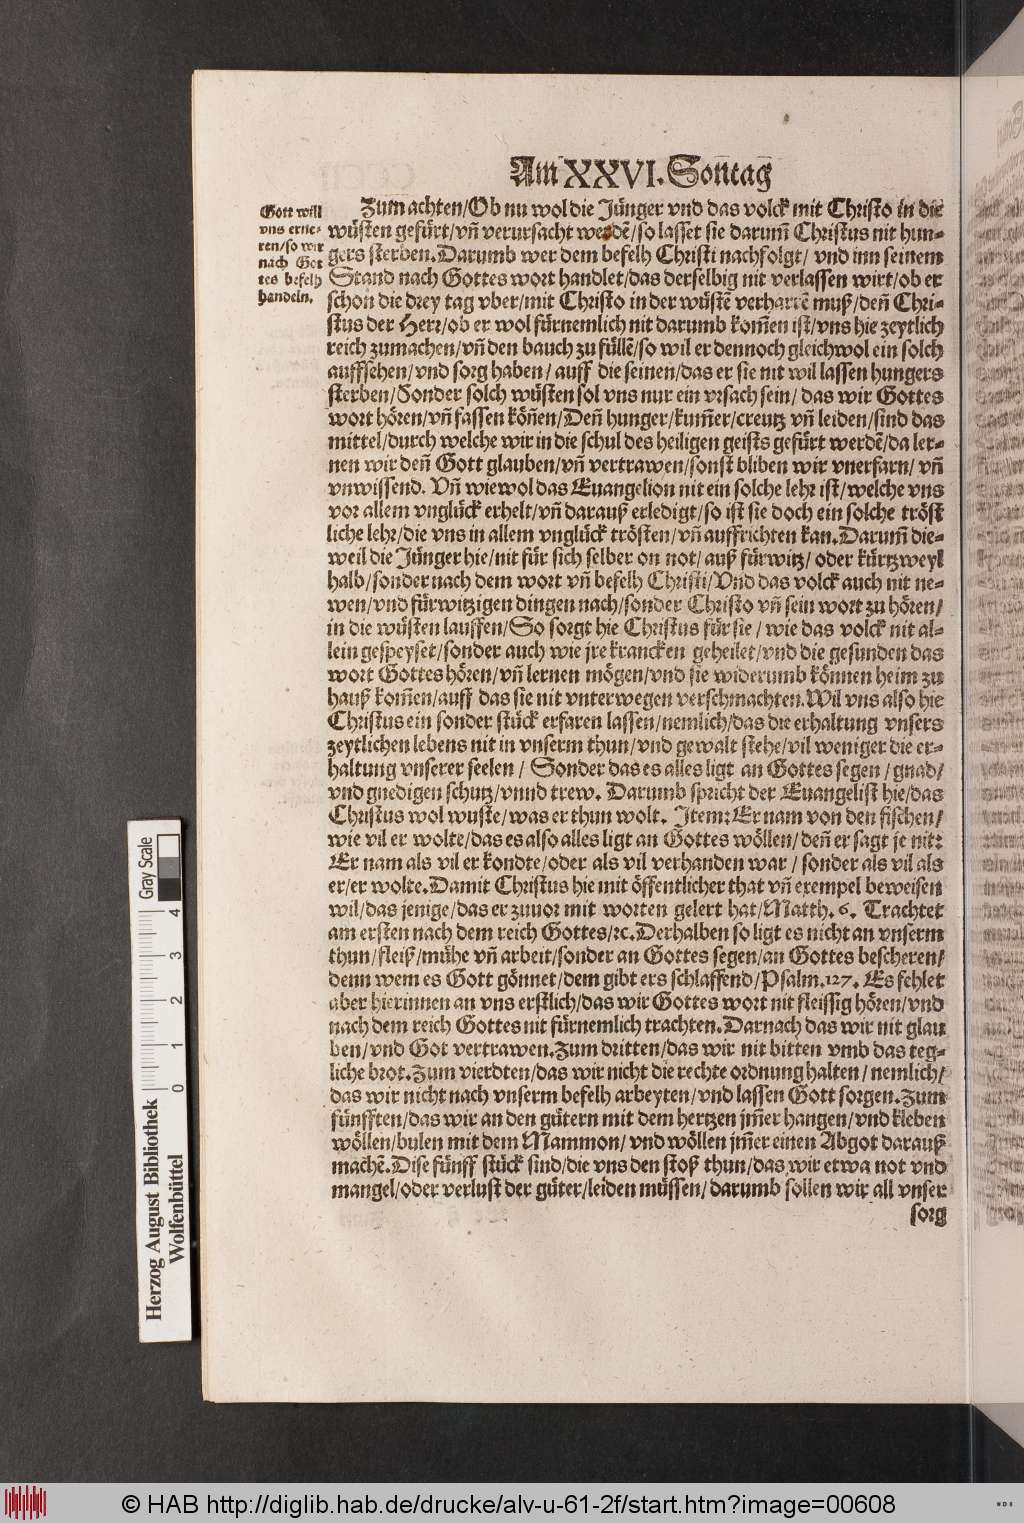 Am XXVI. Soñtag
Gott will
vns erne-
ren/so wir
nach Got
tes befelh
handeln.
Zum achten/Ob nu wol die Jünger vnd das volck mit Christo in die
wüsten gefürt/vñ verursacht werdē/so lasset sie darum̃ Christus nit hun-
gers sterben.Darumb wer dem befelh Christi nachfolgt/ vnd inn seinem
Stand nach Gottes wort handlet/das derselbig nit verlassen wirt/ob er
schon die drey tag vber/mit Christo in der wüstē verharrē muß/deñ Chri-
stus der Herr/ob er wol fürnemlich nit darumb kom̃en ist/vns hie zeytlich
reich zumachen/vñ den bauch zu füllē/so wil er dennoch gleichwol ein solch
auffsehen/vnd sorg haben/ auff die seinen/das er sie nit wil lassen hungers
sterben/Sonder solch wüsten sol vns nur ein vrsach sein/ das wir Gottes
wort hören/vñ fassen köñen/Deñ hunger/kum̃er/creutz vñ leiden/sind das
mittel/durch welche wir in die schul des heiligen geists gefürt werdē/da ler-
nen wir deñ Gott glauben/vñ vertrawen/sonst bliben wir vnerfarn/ vñ
vnwissend. Vñ wiewol das Euangelion nit ein solche lehr ist/welche vns
vor allem vnglück erhelt/vñ darauß erledigt/so ist sie doch ein solche tröst
liche lehr/die vns in allem vnglück trösten/vñ auffrichten kan.Darum̃ die-
weil die Jünger hie/nit für sich selber on not/ auß fürwitz/ oder kürtzweyl
halb/sonder nach dem wort vñ befelh Christi/Vnd das volck auch nit ne-
wen/vnd fürwitzigen dingen nach/sonder Christo vñ sein wort zu hören/
in die wüsten lauffen/So sorgt hie Christus für sie/ wie das volck nit al-
lein gespeyset/sonder auch wie jre krancken geheilet/vnd die gesunden das
wort Gottes hören/vñ lernen mögen/vnd sie widerumb können heim zu
hauß kom̃en/auff das sie nit vnterwegen verschmachten.Wil vns also hie
Christus ein sonder stück erfaren lassen/nemlich/das die erhaltung vnsers
zeytlichen lebens nit in vnserm thun/vnd gewalt stehe/vil weniger die er-
haltung vnserer seelen/ Sonder das es alles ligt an Gottes segen/gnad/
vnd gnedigen schutz/vnnd trew. Darumb spricht der Euangelist hie/das
Christus wol wuste/was er thun wolt. Item: Er nam von den fischen/
wie vil er wolte/das es also alles ligt an Gottes wöllen/deñ er sagt je nit:
Er nam als vil er kondte/oder als vil verhanden war/ sonder als vil als
er/er wolte.Damit Christus hie mit öffentlicher that vñ exempel beweisen
wil/das jenige/das er zuuor mit worten gelert hat/Matth. 6. Trachtet
am ersten nach dem reich Gottes/ꝛc.Derhalben so ligt es nicht an vnserm
thun/fleiß/mühe vñ arbeit/sonder an Gottes segen/an Gottes bescheren/
denn wem es Gott gönnet/dem gibt ers schlaffend/Psalm.127. Es fehlet
aber hierinnen an vns erstlich/das wir Gottes wort nit fleissig hören/vnd
nach dem reich Gottes nit fürnemlich trachten.Darnach das wir nit glau
ben/vnd Got vertrawen.Zum dritten/das wir nit bitten vmb das teg-
liche brot.Zum vierdten/das wir nicht die rechte ordnung halten/ nemlich/
das wir nicht nach vnserm befelh arbeyten/vnd lassen Gott sorgen.Zum
fünfften/das wir an den gütern mit dem hertzen jm̃er hangen/vnd kleben
wöllen/bulen mit dem Mammon/ vnd wöllen jm̃er einen Abgot darauß
machē.Dise fünff stück sind/die vns den stoß thun/das wir etwa not vnd
mangel/oder verlust der güter/leiden müssen/ darumb sollen wir all vnser
sorg
Gray Scale
4
3
2
1
0
Herzog August Bibliothek
Wolfenbüttel
© HAB http://diglib.hab.de/drucke/alv-u-61-2f/start.htm?image=00608